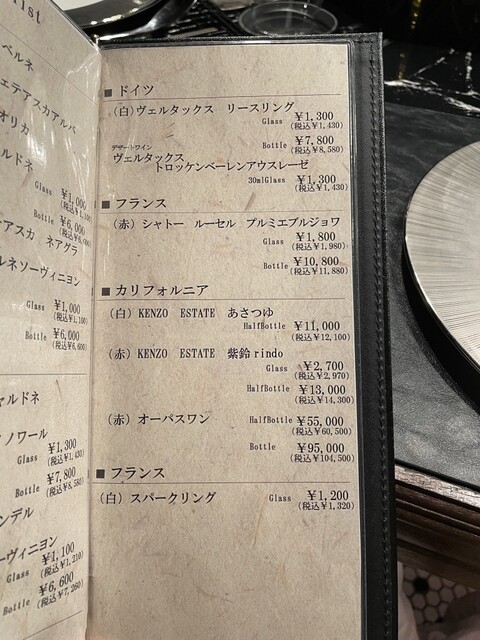 ist
ベルネ
ェテアスカアルバ
オリカ
ルドネ
Glass ¥1,000
(税込¥1,100)
Bottle ¥6,000
アスカ ネアグラ
ルネソーヴィニヨン
Glass ¥1,000
(税込¥1,100)
Bottle ¥6,000
(税込¥6,600)
ャルドネ
ノワール
Glass ¥1,300
(税込¥1,430)
Bottle ¥7,800
(税込¥8,580)
ンデル
ーヴィニヨン
Glass ¥1,100
(税込¥1,210)
Bottle ¥6,600
(税込¥7,260)
■ドイツ
(白)ヴェルタックス リースリング
Glass ¥1,300
(税込¥1,430)
Bottle ¥7,800
(税込¥8,580)
デザートワイン
ヴェルタックス
トロッケンベーレンアウスレーゼ
30mlGlass ¥1,300
(税込¥1,430)
■フランス
(赤)シャトー ルーセル プルミエブルジョワ
Glass ¥1,800
(税込¥1,980)
Bottle ¥10,800
(税込¥11,880)
■カリフォルニア
(白)KENZO ESTATE あさつゆ
HalfBottle ¥11,000
(税込¥12,100)
(赤)KENZO ESTATE 紫鈴rindo
Glass ¥2,700
(税込¥2,970)
HalfBottle ¥13,000
(税込¥14,300)
(赤)オーパスワン HalfBottle ¥55,000
(税込¥60,500)
Bottle ¥95,000
(税込¥104,500)
■フランス
(白)スパークリング Glass ¥1,200
(税込¥1,320)